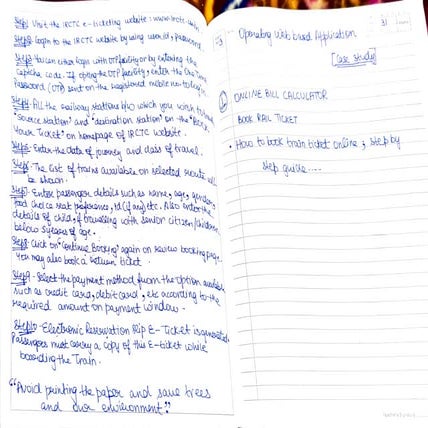 Step1: Visit the IRCTC e-ticketing website: www.irctc.
Step2: Login to the IRCTC website by using user id, password.
Step3: You can either login with OTP facility or by entering the
captcha code. If opting the OTP facility, enter the One Time
Password (OTP) sent on the registered mobile no to log in
Step4: Fill the railway stations b/w which you wish to travel
"source station" and "destination station" on the "Book
Your Ticket" on homepage of IRCTC website.
Step5: Enter the data of journey and class of travel.
Step6: The list of trains available on selected route will
be shown.
Step7: Enter passenger details such as name, age, gender,
food choice seat preference, id (if any) etc. Also enter the
details of child, if travelling with senior citizen/children
below 5 years of age.
Step8: Click on "Continue Booking" again on review booking page.
You may also book a return ticket.
Step9: Select the payment method from the option available
such as credit card, debit card, etc according to the
required amount on payment window.
Step10: Electronic Reservation Slip E-Ticket is generated
Passengers must carry a copy of this E-ticket while
boarding the Train.
"Avoid printing the paper and save trees
and our environment"
31
Operating Web based Application
[Case study]
① ONLINE BILL CALCULATOR
BOOK RAIL TICKET
• How to book train ticket online; step by
step guide....